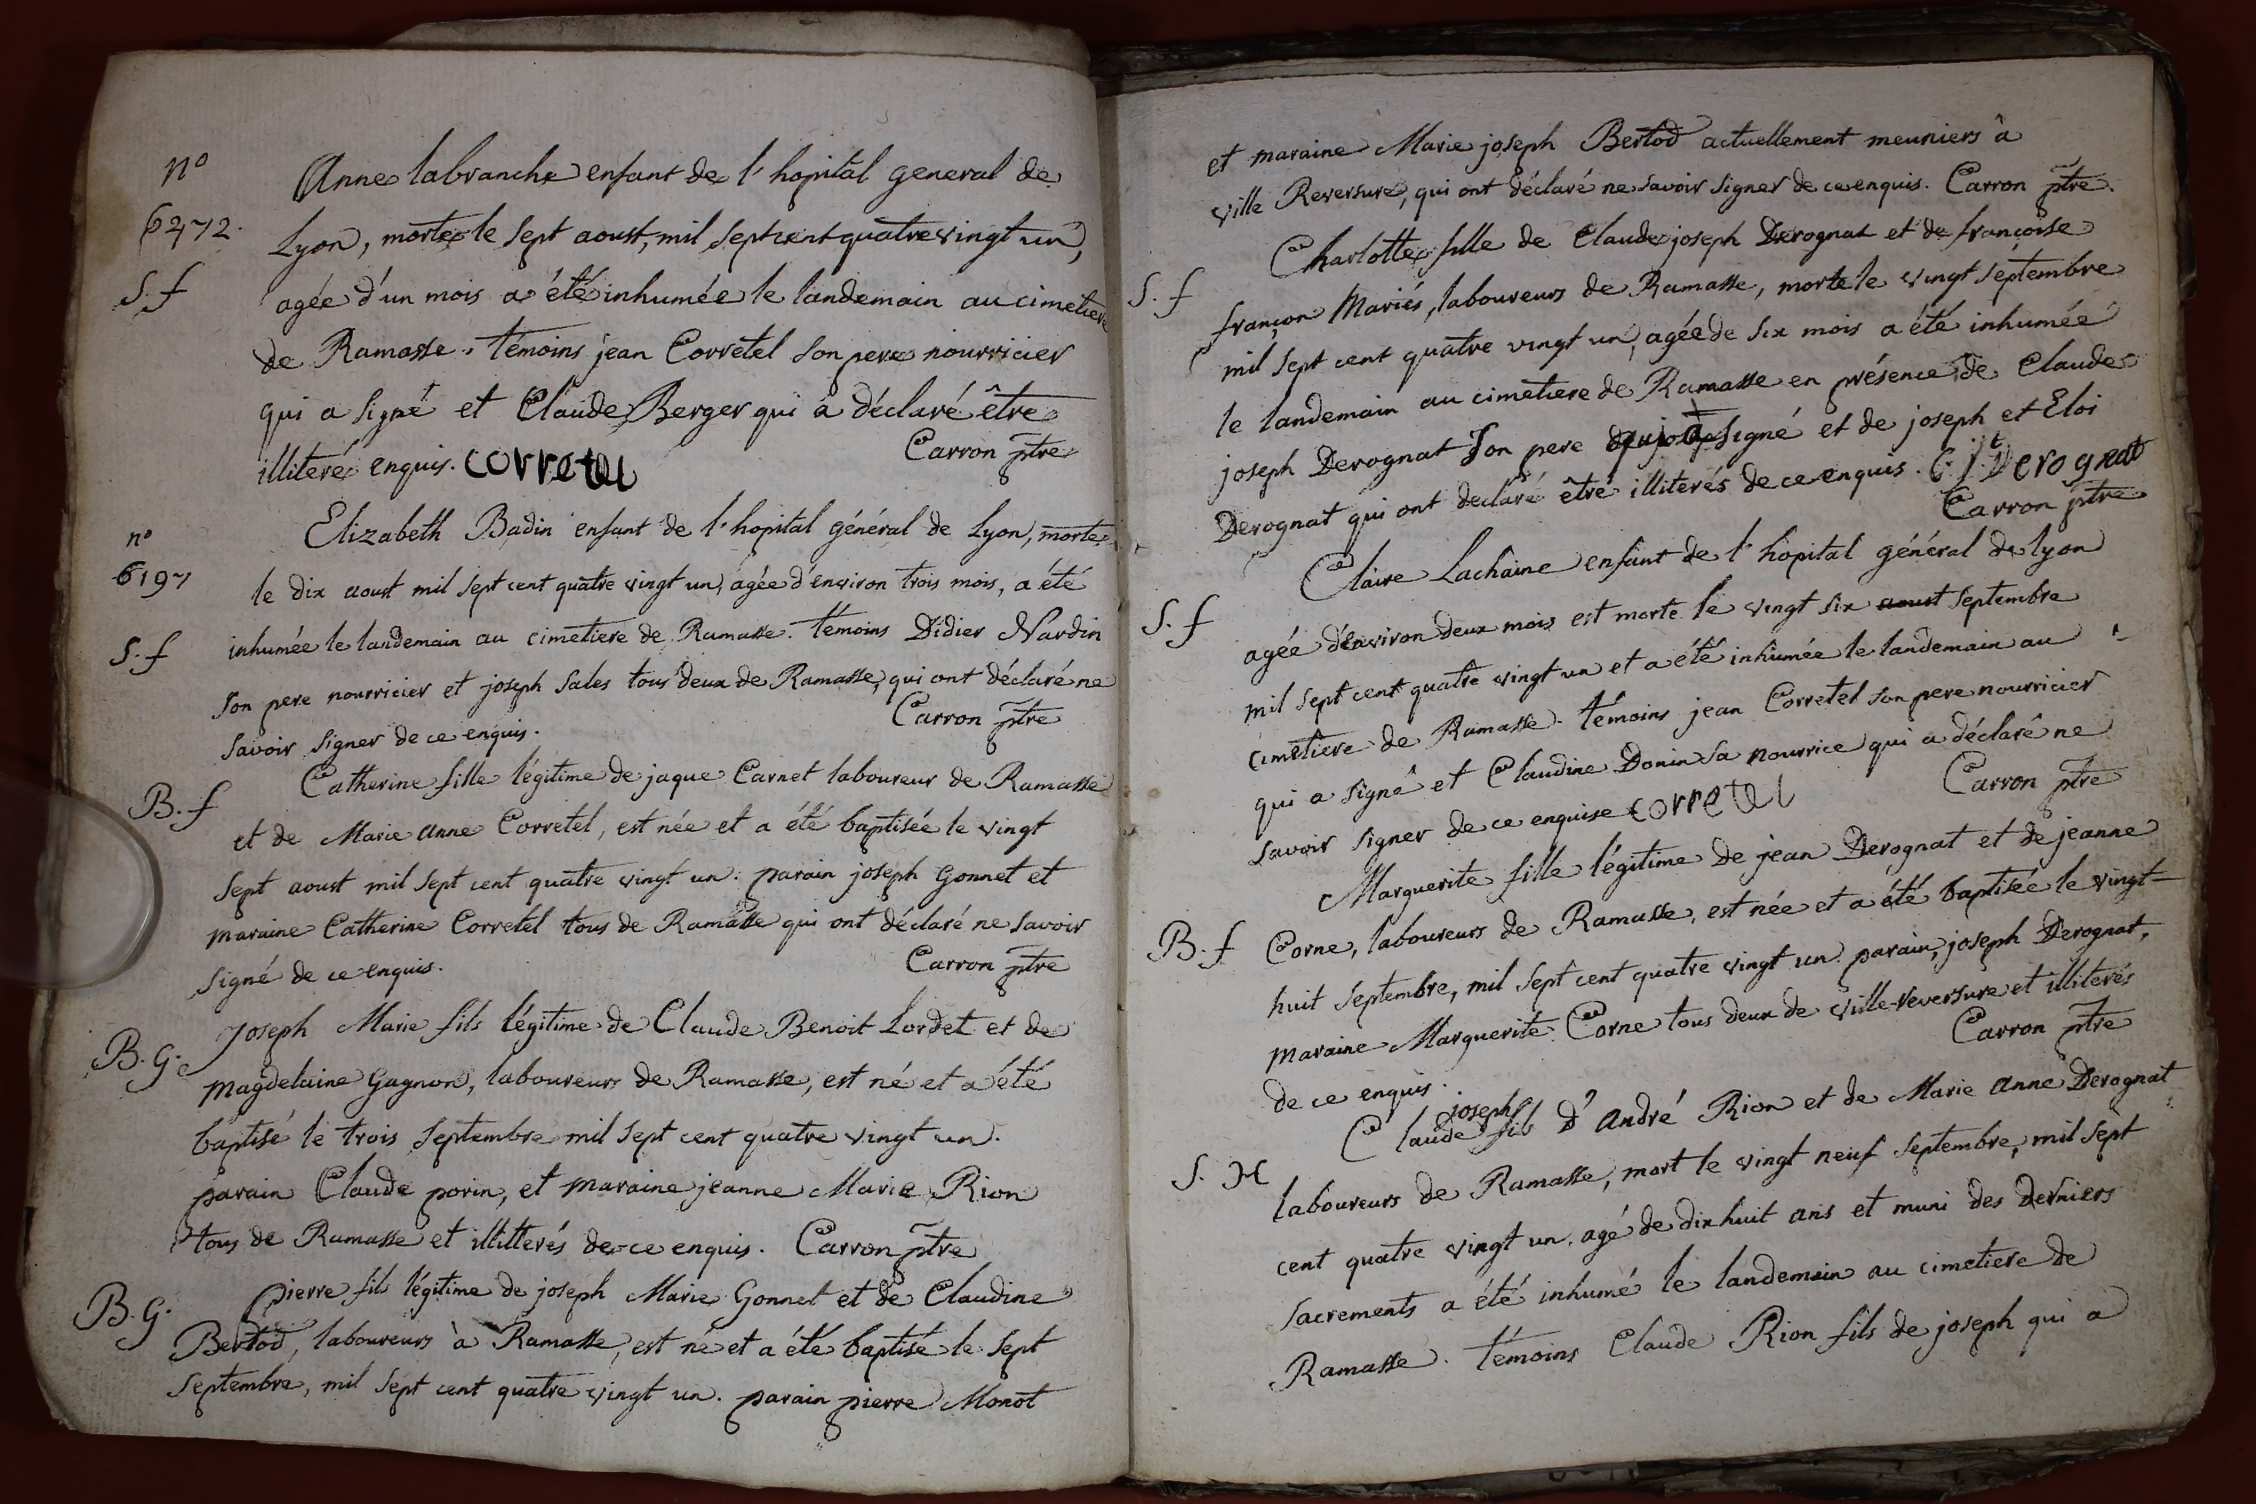 n°
6272.
S. f
Anne labranche enfant de l'hopital general de
Lyon, morte le sept aoust, mil sept cent quatre vingt un,
agée d'un mois a été inhumée le landemain au cimetiere
de Ramasse. témoins jean Corretel son pere nourricier
qui a signé et Claude Berger qui a déclaré être
illiteré enquis. corretel Carron ptre
n°
6197
S. f
Elizabeth Badin enfant de l'hopital général de Lyon, morte
le dix aoust mil sept cent quatre vingt un, agée d'environ trois mois, a été
inhumée le landemain au cimetiere de Ramasse. témoins Didier Nardin
son pere nourricier et joseph Sales tous deux de Ramasse, qui ont déclaré ne
savoir signer de ce enquis. Carron ptre
B. f
Catherine fille légitime de jaque Carnet laboureur de Ramasse
et de Marie anne Corretel, est née et a été baptisée le vingt
sept aoust mil sept cent quatre vingt un. parain joseph Gonnet et
maraine Catherine Corretel tous de Ramasse qui ont déclaré ne savoir
signé de ce enquis. Carron ptre
B. G.
Joseph Marie fils légitime de Claude Benoit Lordet et de
Magdelaine Gagnon, laboureurs de Ramasse, est né et a été
baptisé le trois septembre mil sept cent quatre vingt un.
parain Claude porin, et maraine jeanne Marie Rion
tous de Ramasse et illitterés de ce enquis. Carron ptre
B. G.
pierre fils légitime de joseph Marie Gonnet et de Claudine
Bertod, laboureurs à Ramasse, est né et a été baptisé le sept
septembre, mil sept cent quatre vingt un. parain pierre Monot
et maraine Marie joseph Bertod actuellement meuniers à
ville Reversure, qui ont déclaré ne savoir signer de ce enquis. Carron ptre.
S. f
Charlotte fille de Claude joseph Derognat et de françoise
françon Mariés, laboureurs de Ramasse, morte le vingt septembre
mil sept cent quatre vingt un, agée de six mois a été inhumée
le landemain au cimetiere de Ramasse en présence de Claude
joseph Derognat son pere qui a signé et de joseph et Eloi
Derognat qui ont declaré être illiterés de ce enquis. C. jt Derognat
Carron ptre
S. f
Claire Lachaine enfant de l'hopital général de lyon
agée d'environ deux mois est morte le vingt six aoust septembre
mil sept cent quatre vingt un et a été inhumée le landemain au
cimetiere de Ramasse. témoins jean Corretel son pere nourricier
qui a signé et Claudine Donin sa nourrice qui a déclaré ne
savoir signer de ce enquise corretel Carron ptre
B. f
Marguerite fille légitime de jean Derognat et de jeanne
Corne, laboureurs de Ramasse, est née et a été baptisée le vingt
huit septembre, mil sept cent quatre vingt un. parain, joseph Derognat,
maraine Marguerite Corne tous deux de ville-reversure et illiterés
de ce enquis. Carron ptre
S. H
joseph
Claude fils d'andré Rion et de Marie anne Derognat
laboureurs de Ramasse, mort le vingt neuf septembre, mil sept
cent quatre vingt un. agé de dixhuit ans et muni des derniers
sacrements a été inhumé le landemain au cimetiere de
Ramasse. témoins Claude Rion fils de joseph qui a